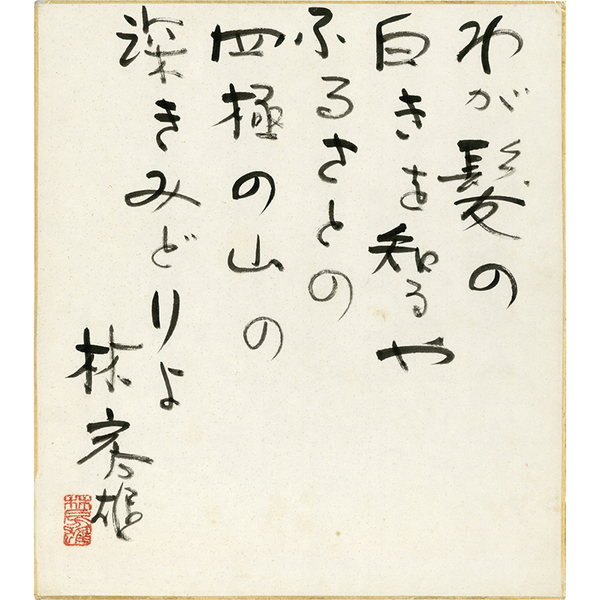 わが髪の
白きを知るや
ふるさとの
四極の山の
深きみどりよ
林房雄